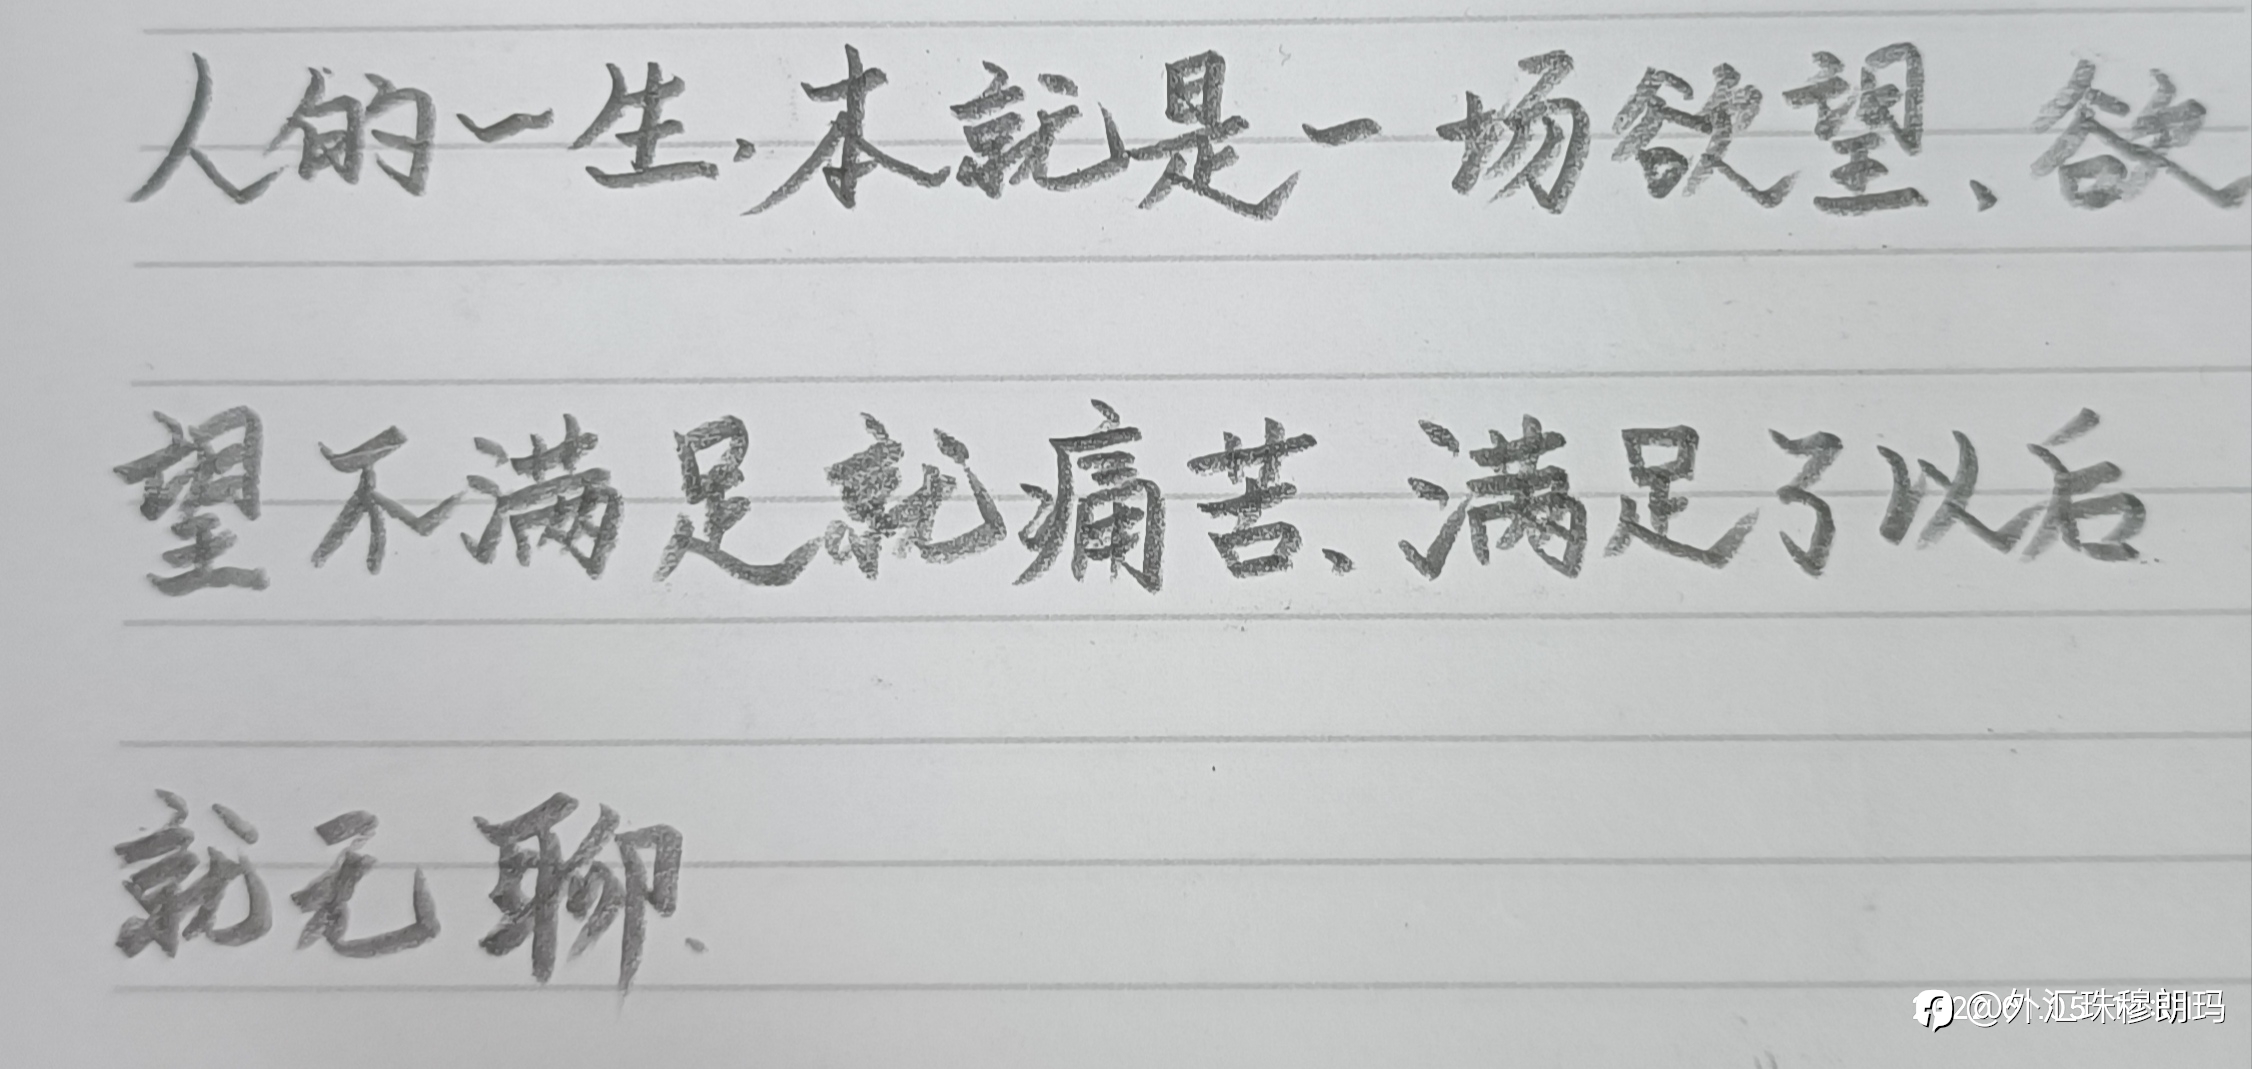 人的一生、本就是一场欲望、欲
望不满足就痛苦、满足了以后
就无聊、
@外汇珠穆朗玛